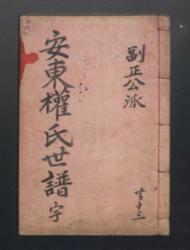 副正公派
安東權氏世譜 宇